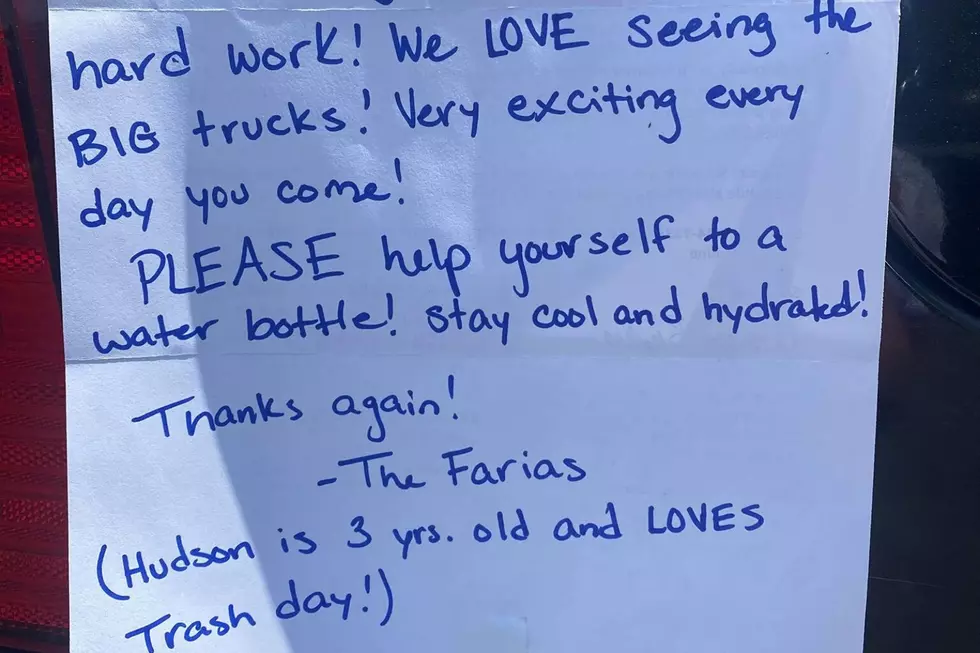 hard work! We LOVE seeing the
BIG trucks! Very exciting every
day you come!
PLEASE help yourself to a
water bottle! Stay cool and hydrated!
Thanks again!
-The Farias
(Hudson is 3 yrs. old and LOVES
Trash day!)